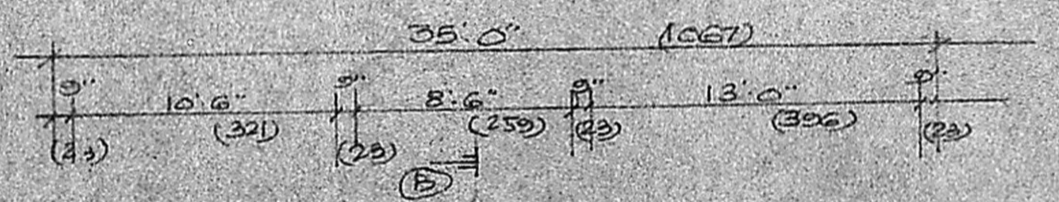 35'.0" (1067)
9" 10'.6" 9" 8'.6" 9" 13'.0" 9"
(23) (321) (23) (259) (23) (396) (23)
B